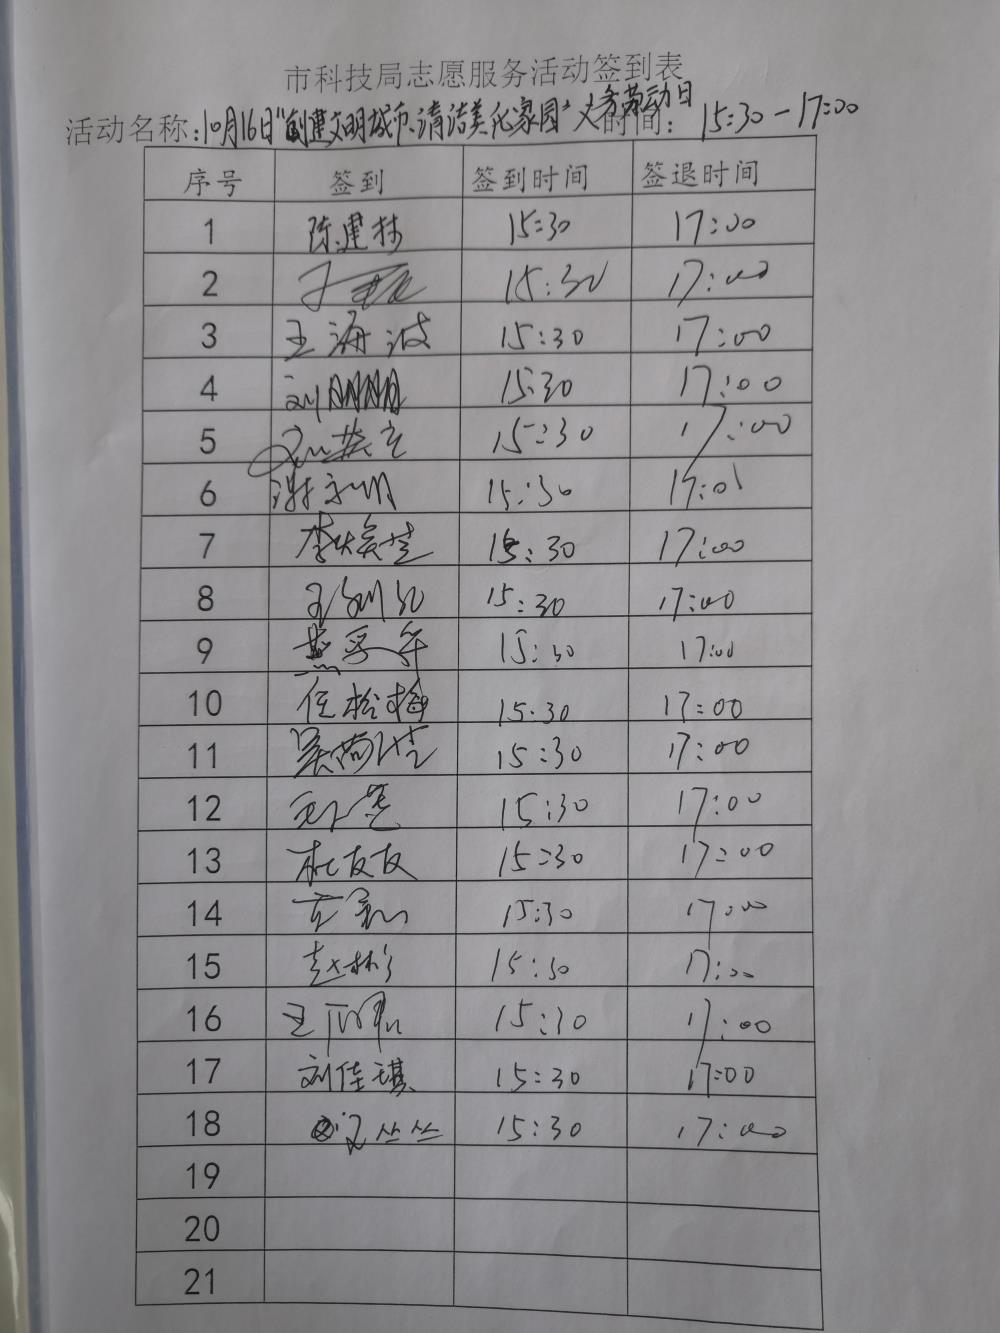 市科技局志愿服务活动签到表
活动名称:10月16日"创建文明城市、清洁美化家园"义务劳动日 时间: 15:30-17:00
序号 签到 签到时间 签退时间
1 陈建林 15:30 17:00
2 15:30 17:00
3 王海波 15:30 17:00
4 刘明明 15:30 17:00
5 15:30 17:00
6 15:30 17:01
7 15:30 17:00
8 15:30 17:00
9 15:30 17:00
10 任松梅 15:30 17:00
11 15:30 17:00
12 15:30 17:00
13 杜友友 15:30 17:00
14 15:30 17:00
15 赵彬 15:30 17:00
16 15:30 17:00
17 刘佳琪 15:30 17:00
18 丛丛 15:30 17:00
19
20
21